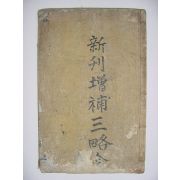 新刊增補三略全